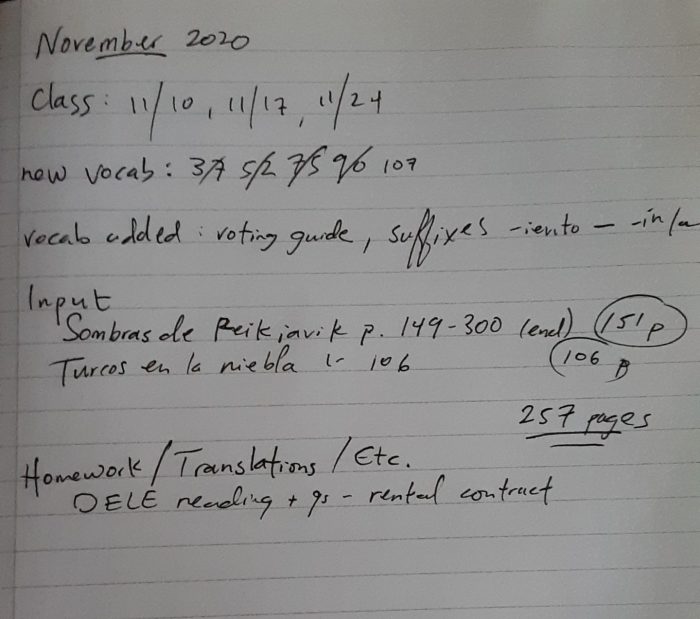 November 2020
Class: 11/10, 11/17, 11/24
new vocab: 37 52 75 96 107
vocab added: voting guide, suffixes -iento - -in/a
Input
Sombras de Reikjavik p. 149-300 (end) 151 p
Turcos en la niebla 1- 106 106 p
257 pages
Homework/Translations/Etc.
DELE reading + qs - rental contract